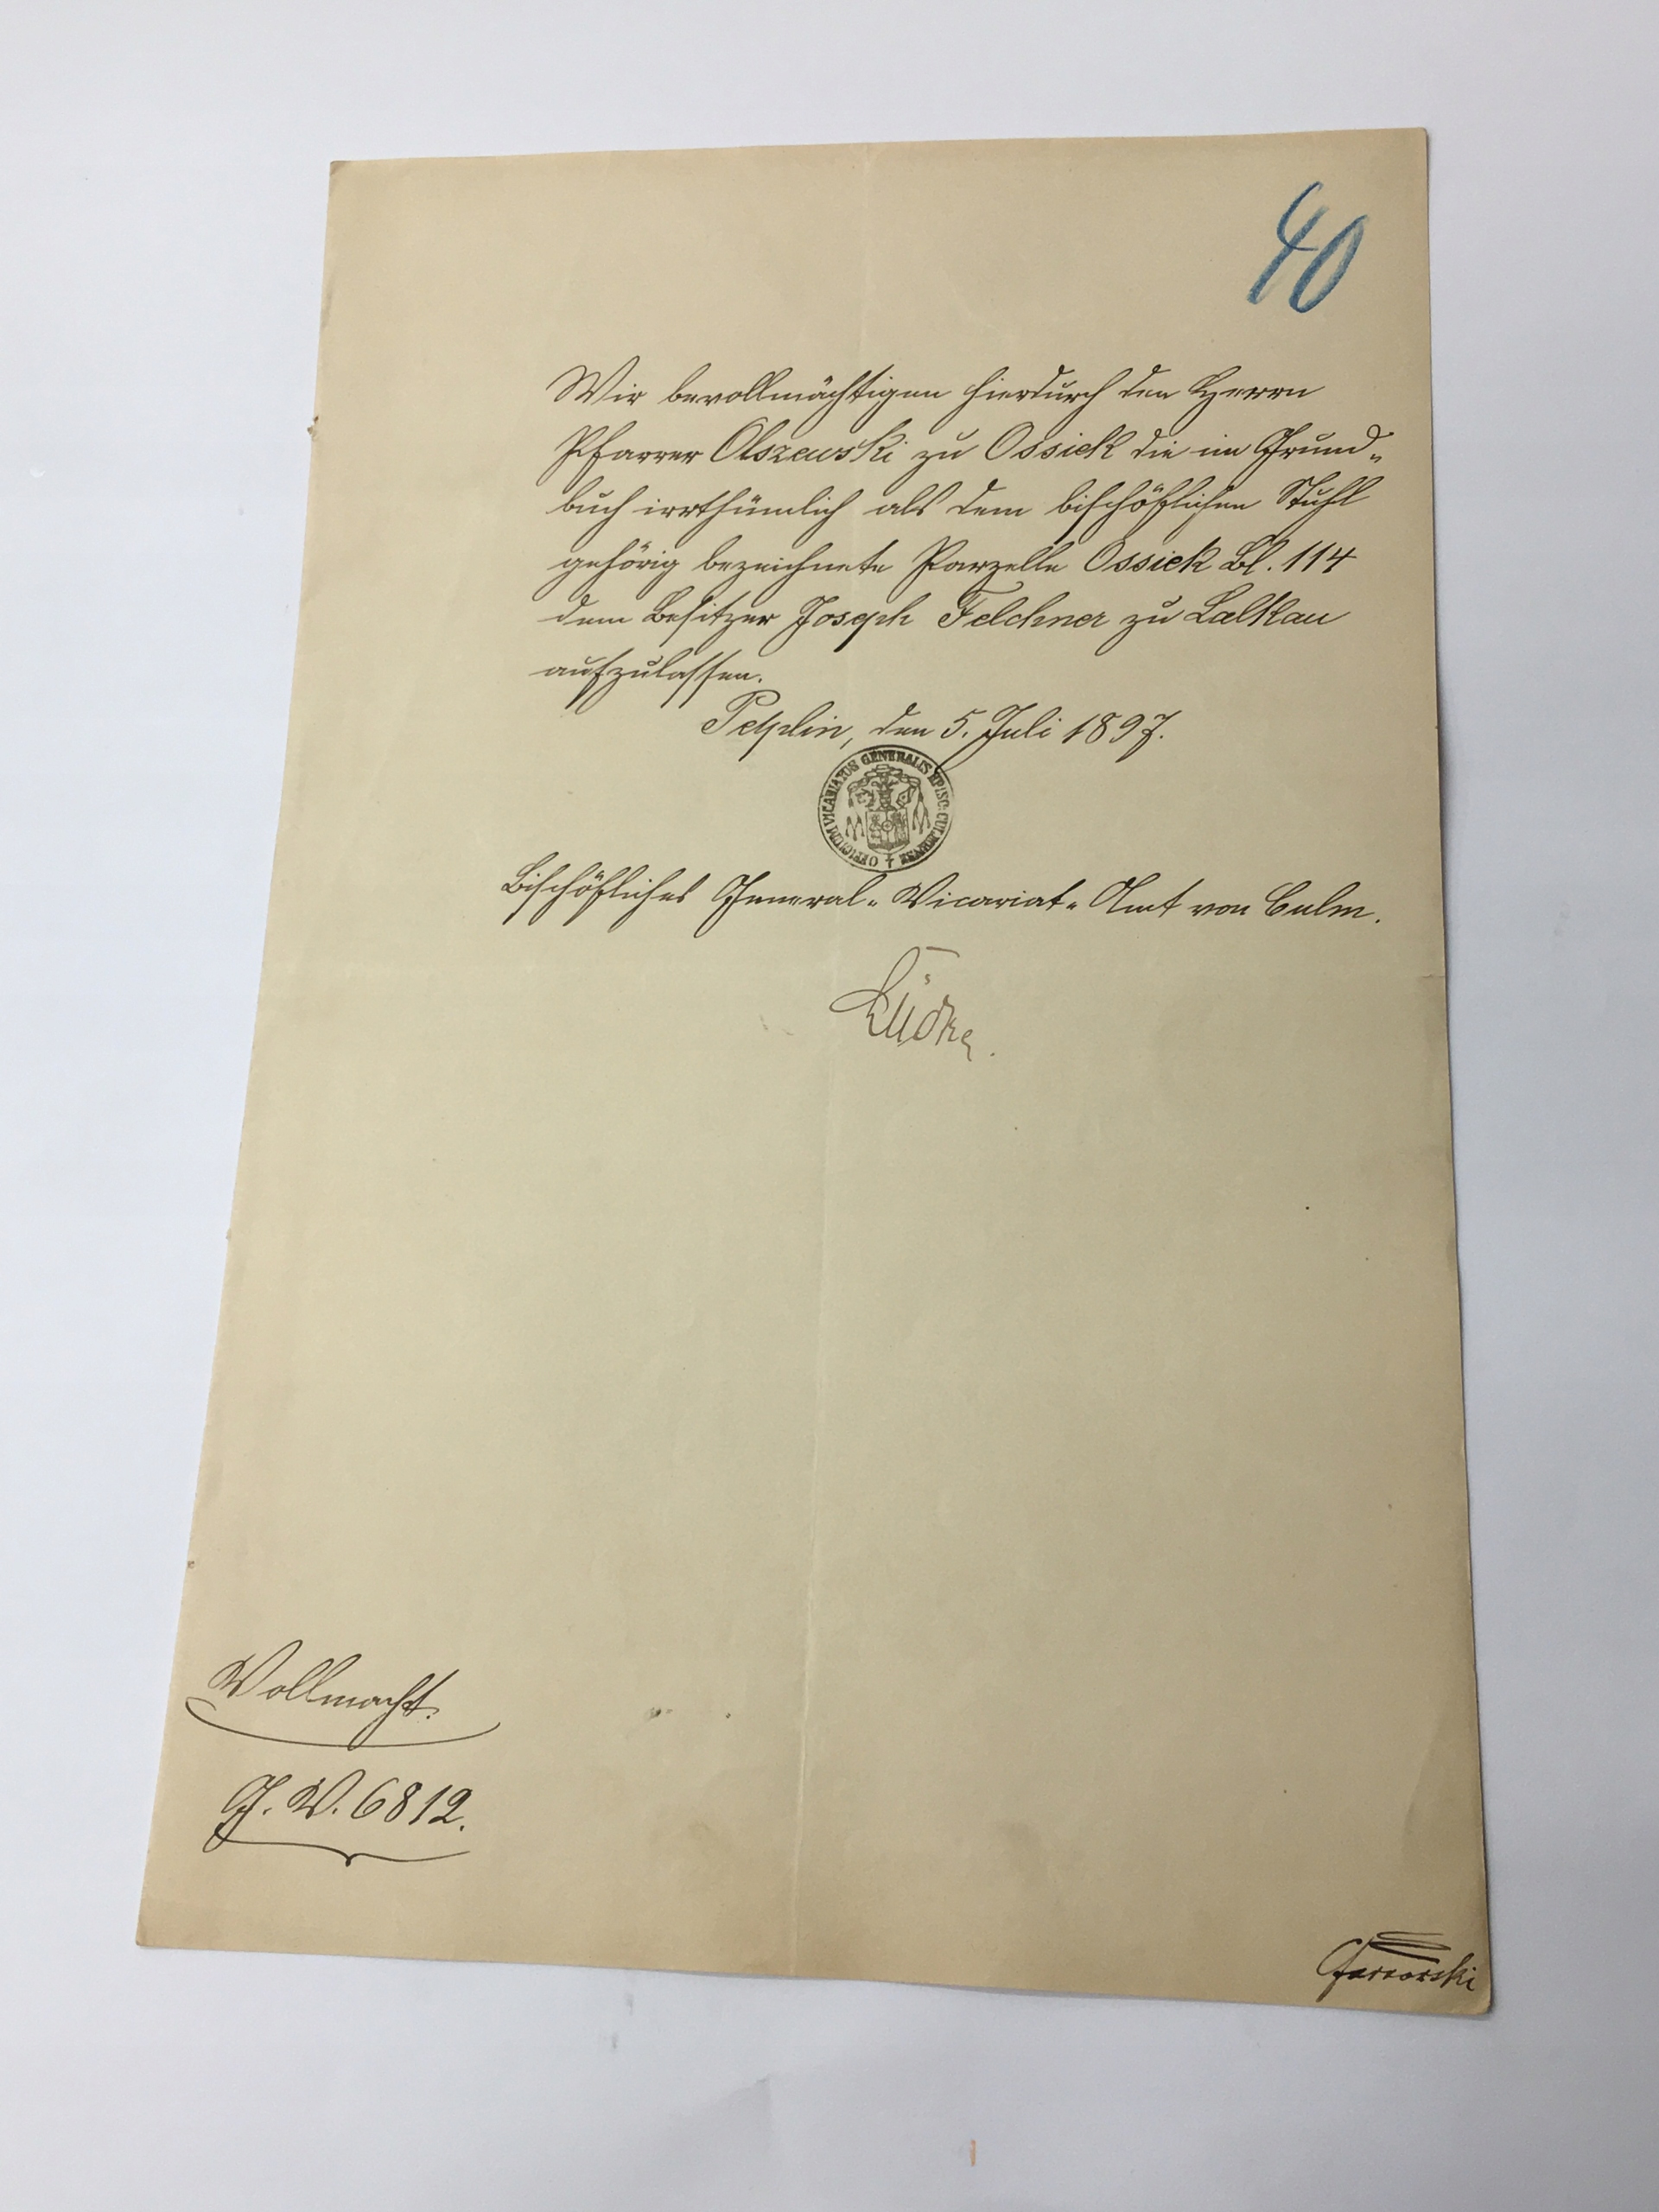 40
Wir bevollmächtigen hierdurch den Herrn
Pfarrer Olszewski zu Ossiek die im Grund-
buch irrthümlich als dem bischöflichen Stuhl
gehörig bezeichnete Parzelle Ossiek Bl. 114
dem Besitzer Joseph Felchner zu Lalkau
aufzulassen.
Pelplin, den 5. Juli 1897.
OFFICIUM VICARIATUS GENERALIS EPISC. CULMENSE
Bischöfliches General-Vicariat-Amt von Culm.
Lüdke.
Vollmacht.
G. V. 6812.